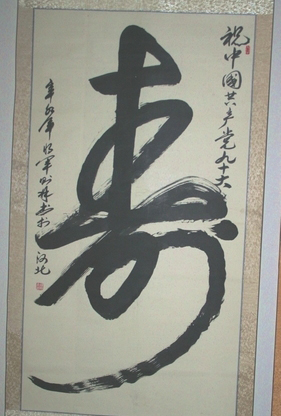 祝中國共产党九十大
寿
辛卯年 书于
河北